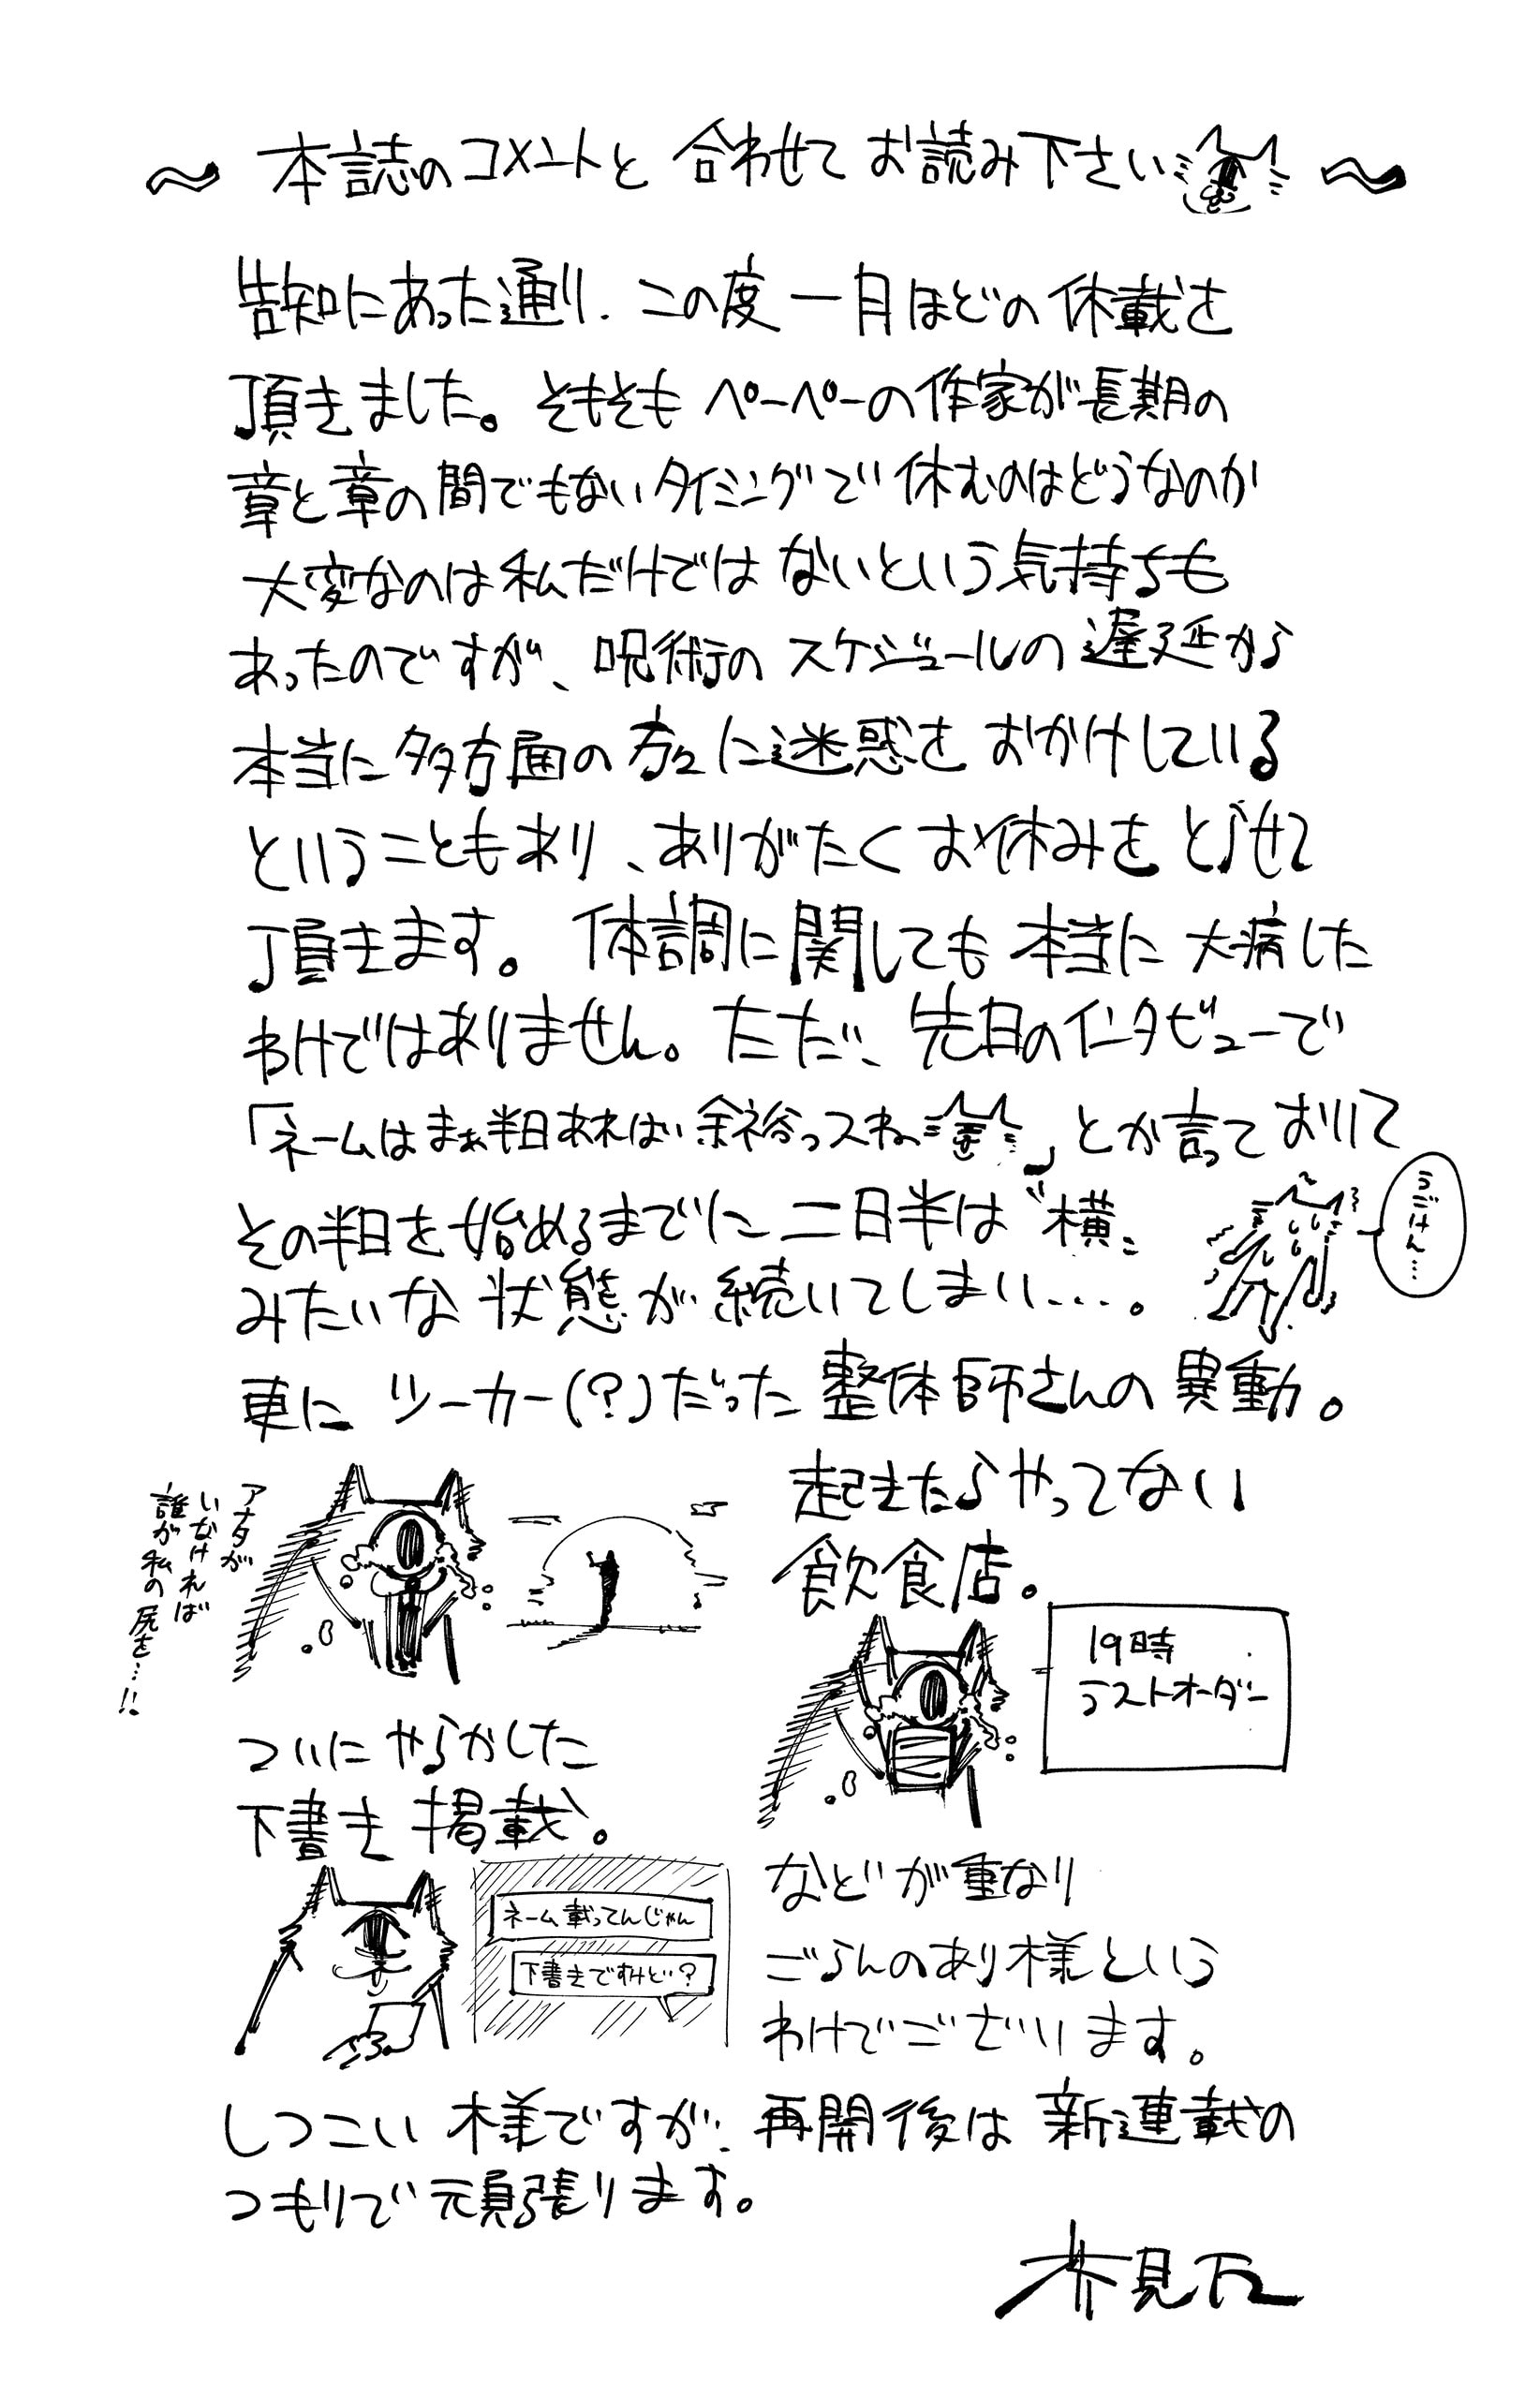 〜 本誌のコメントと 合わせて お読み下さい 〜
告知にあった通り、この度 一月ほどの 休載を
頂きました。そもそも ペーペーの作家が長期の
章と章の間でもないタイミングで 休むのはどうなのか
大変なのは私だけでは ないという気持ちも
あったのですが、呪術の スケジュールの 遅延から
本当に 多方面の 方々に迷惑を おかけしている
ということもあり、ありがたく お休みを とらせて
頂きます。 体調に関しても 本当に 大病した
わけではありません。ただ、先日のインタビューで
「ネームはまぁ半日あれば 余裕っスね」とか言って おりて
その半日を始めるまでに 二日半は〝横〟
うごけん…
みたいな 状態が続いてしまい….
更に ツーカー(?)だった 整体師さんの 異動。
アナタが
いなければ
誰が私の尻を…!!
起きたらやってない
飲食店。
19時
ラストオーダー
ついに やらかした
下書き 掲載。
ネーム載ってんじゃん
下書きですけど?
などが重なり
ごらんのあり様という
わけでございます。
しつこい 様ですが、再開後は 新連載の
つもりで頑張ります。
芥見下々